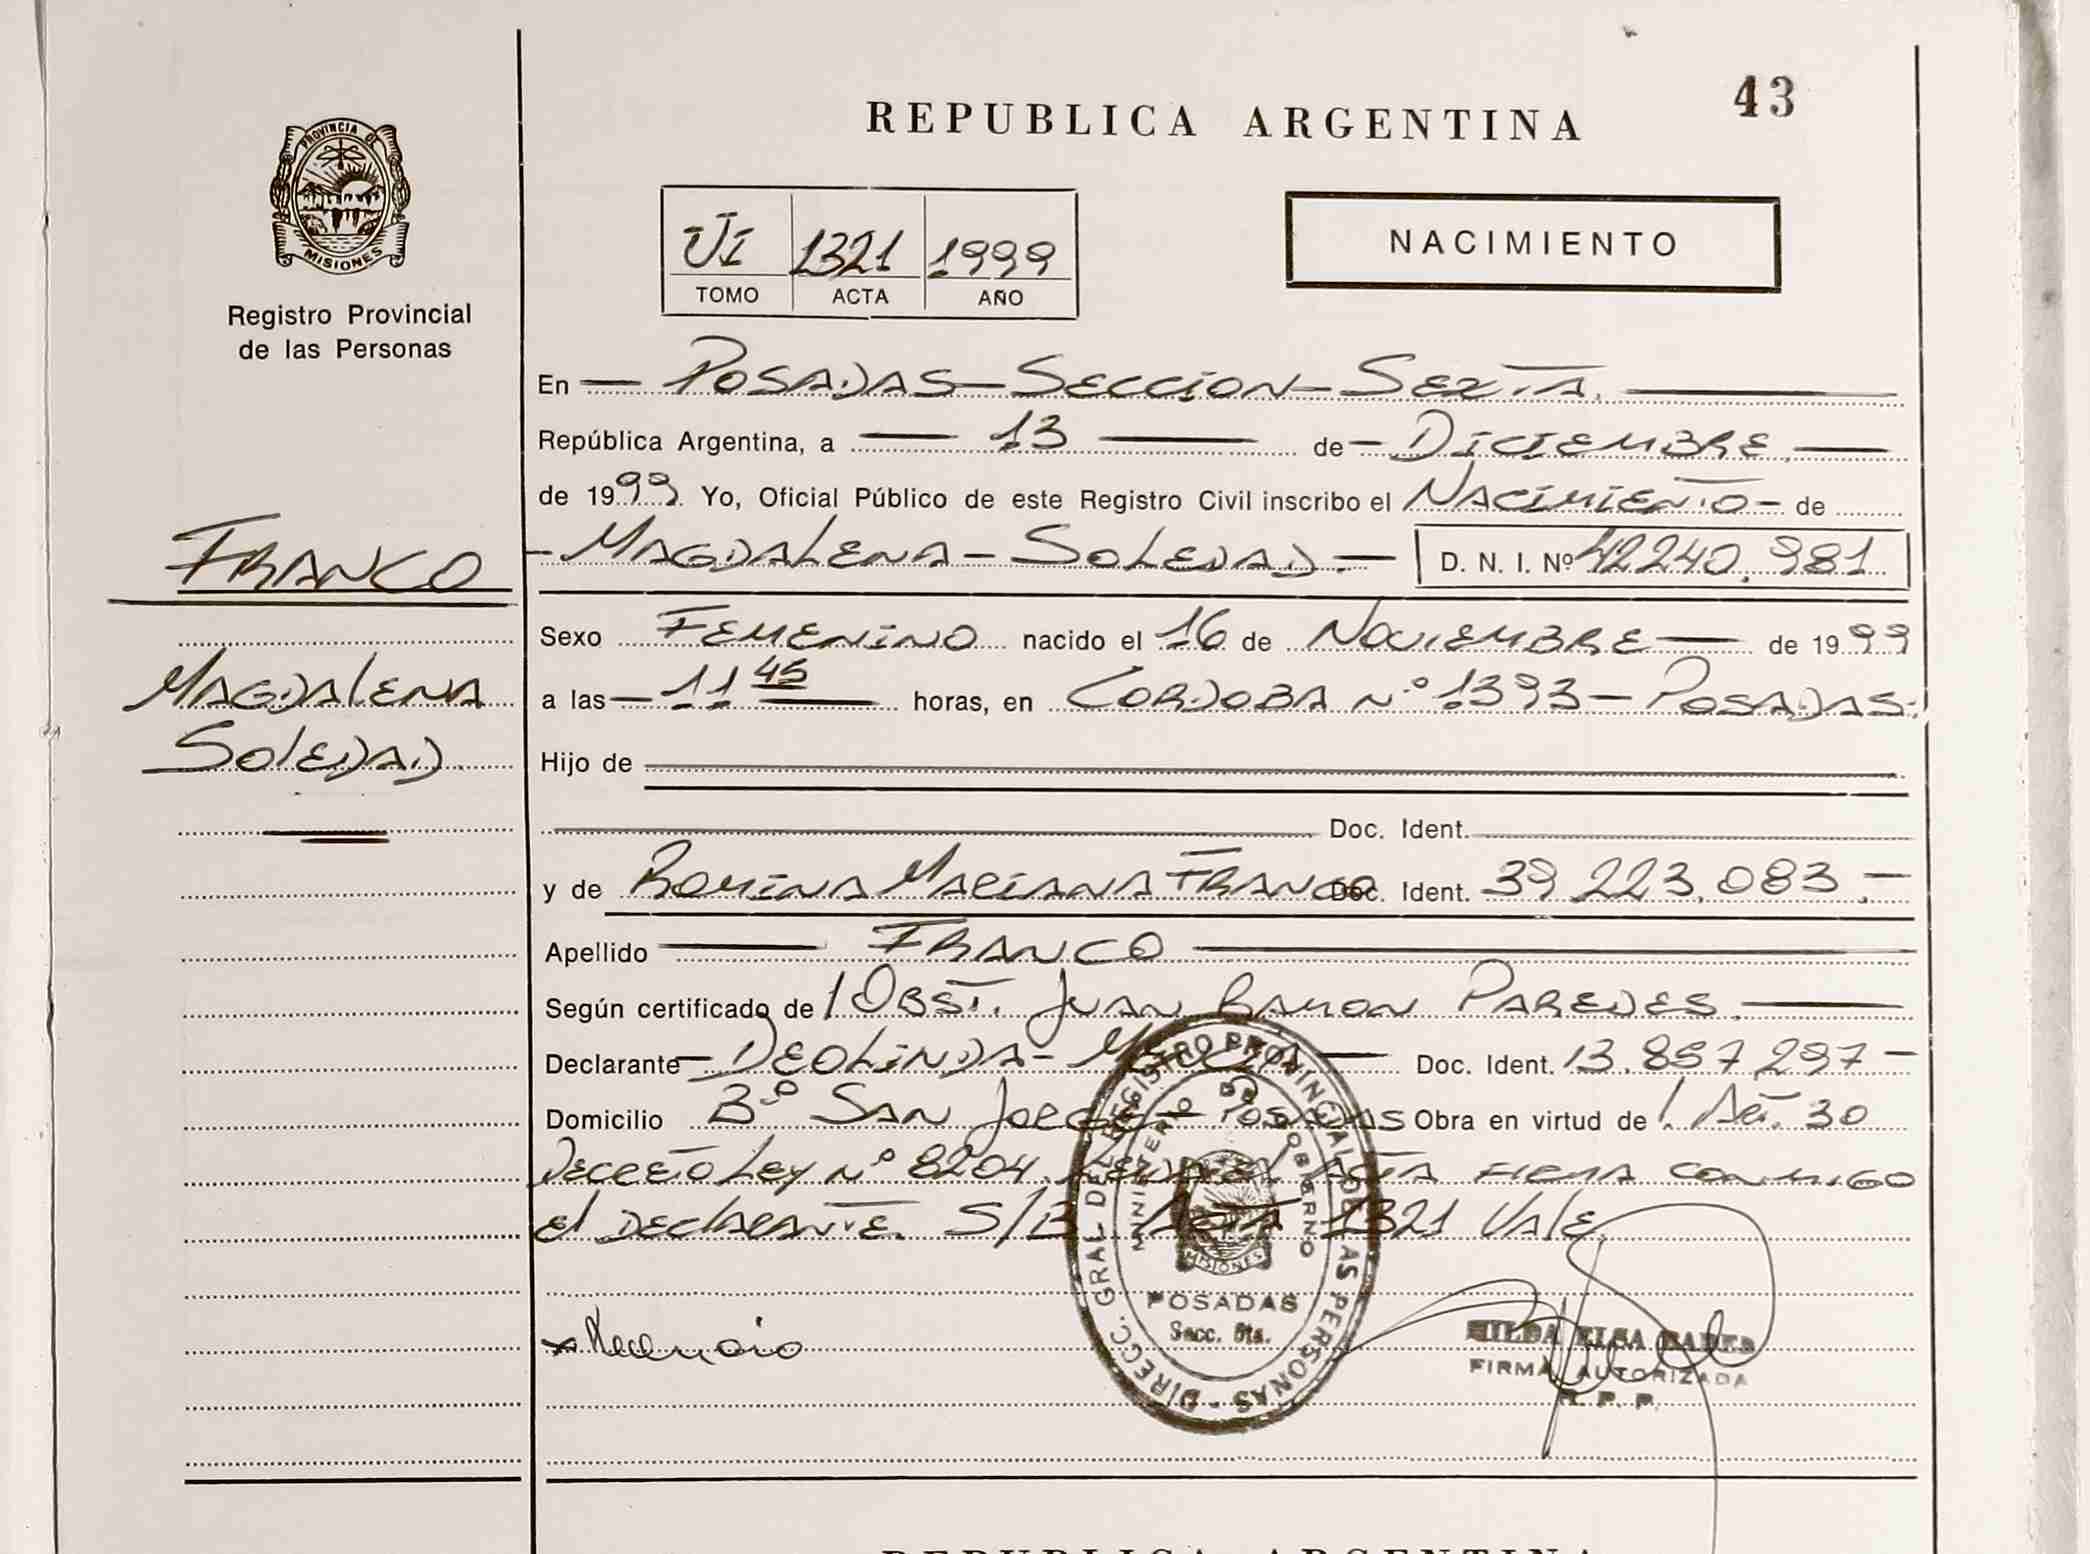 43
REPUBLICA ARGENTINA
PROVINCIA DE
MISIONES
Registro Provincial
de las Personas
VI 1321 1999
TOMO ACTA AÑO
NACIMIENTO
En — POSADAS – SECCION – SEXTA.
República Argentina, a — 13 — de – DICIEMBRE —
de 1999. Yo, Oficial Público de este Registro Civil inscribo el NACIMIENTO – de
FRANCO
– MAGDALENA – SOLEDAD. – D. N. I. Nº 42240.981
Sexo FEMENINO nacido el 16 de NOVIEMBRE — de 1999
MAGDALENA
a las – 11 45 — horas, en CORDOBA Nº 1393 – POSADAS.
SOLEDAD.
Hijo de
Doc. Ident.
y de ROMINA MARIANA FRANCO Doc. Ident. 39.223.083. –
Apellido — FRANCO —
Según certificado de / OBST. JUAN RAMON PAREDES. —
Declarante – DEOLINDA – — Doc. Ident. 13.857297 –
Domicilio Bº SAN JORGE – POSADAS Obra en virtud de 30
DECRETO LEY Nº 8204. ACTA FIRMA CONMIGO
el DECLARANTE. S/B ACTA 1321 Vale.
DIRECC. GRAL DEL REGISTRO PROVINCIAL DE LAS PERSONAS
MINISTERIO DE GOBIERNO
MISIONES
POSADAS
Secc. 6ta.
HILDA ELSA
FIRMA AUTORIZADA
R. P. P.
REPUBLICA ARGENTINA